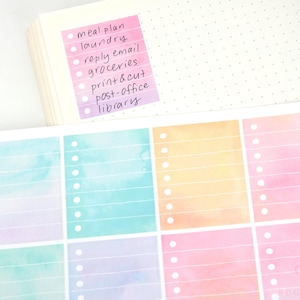 meal plan
laundry
reply email
groceries
print&cut
post-office
library